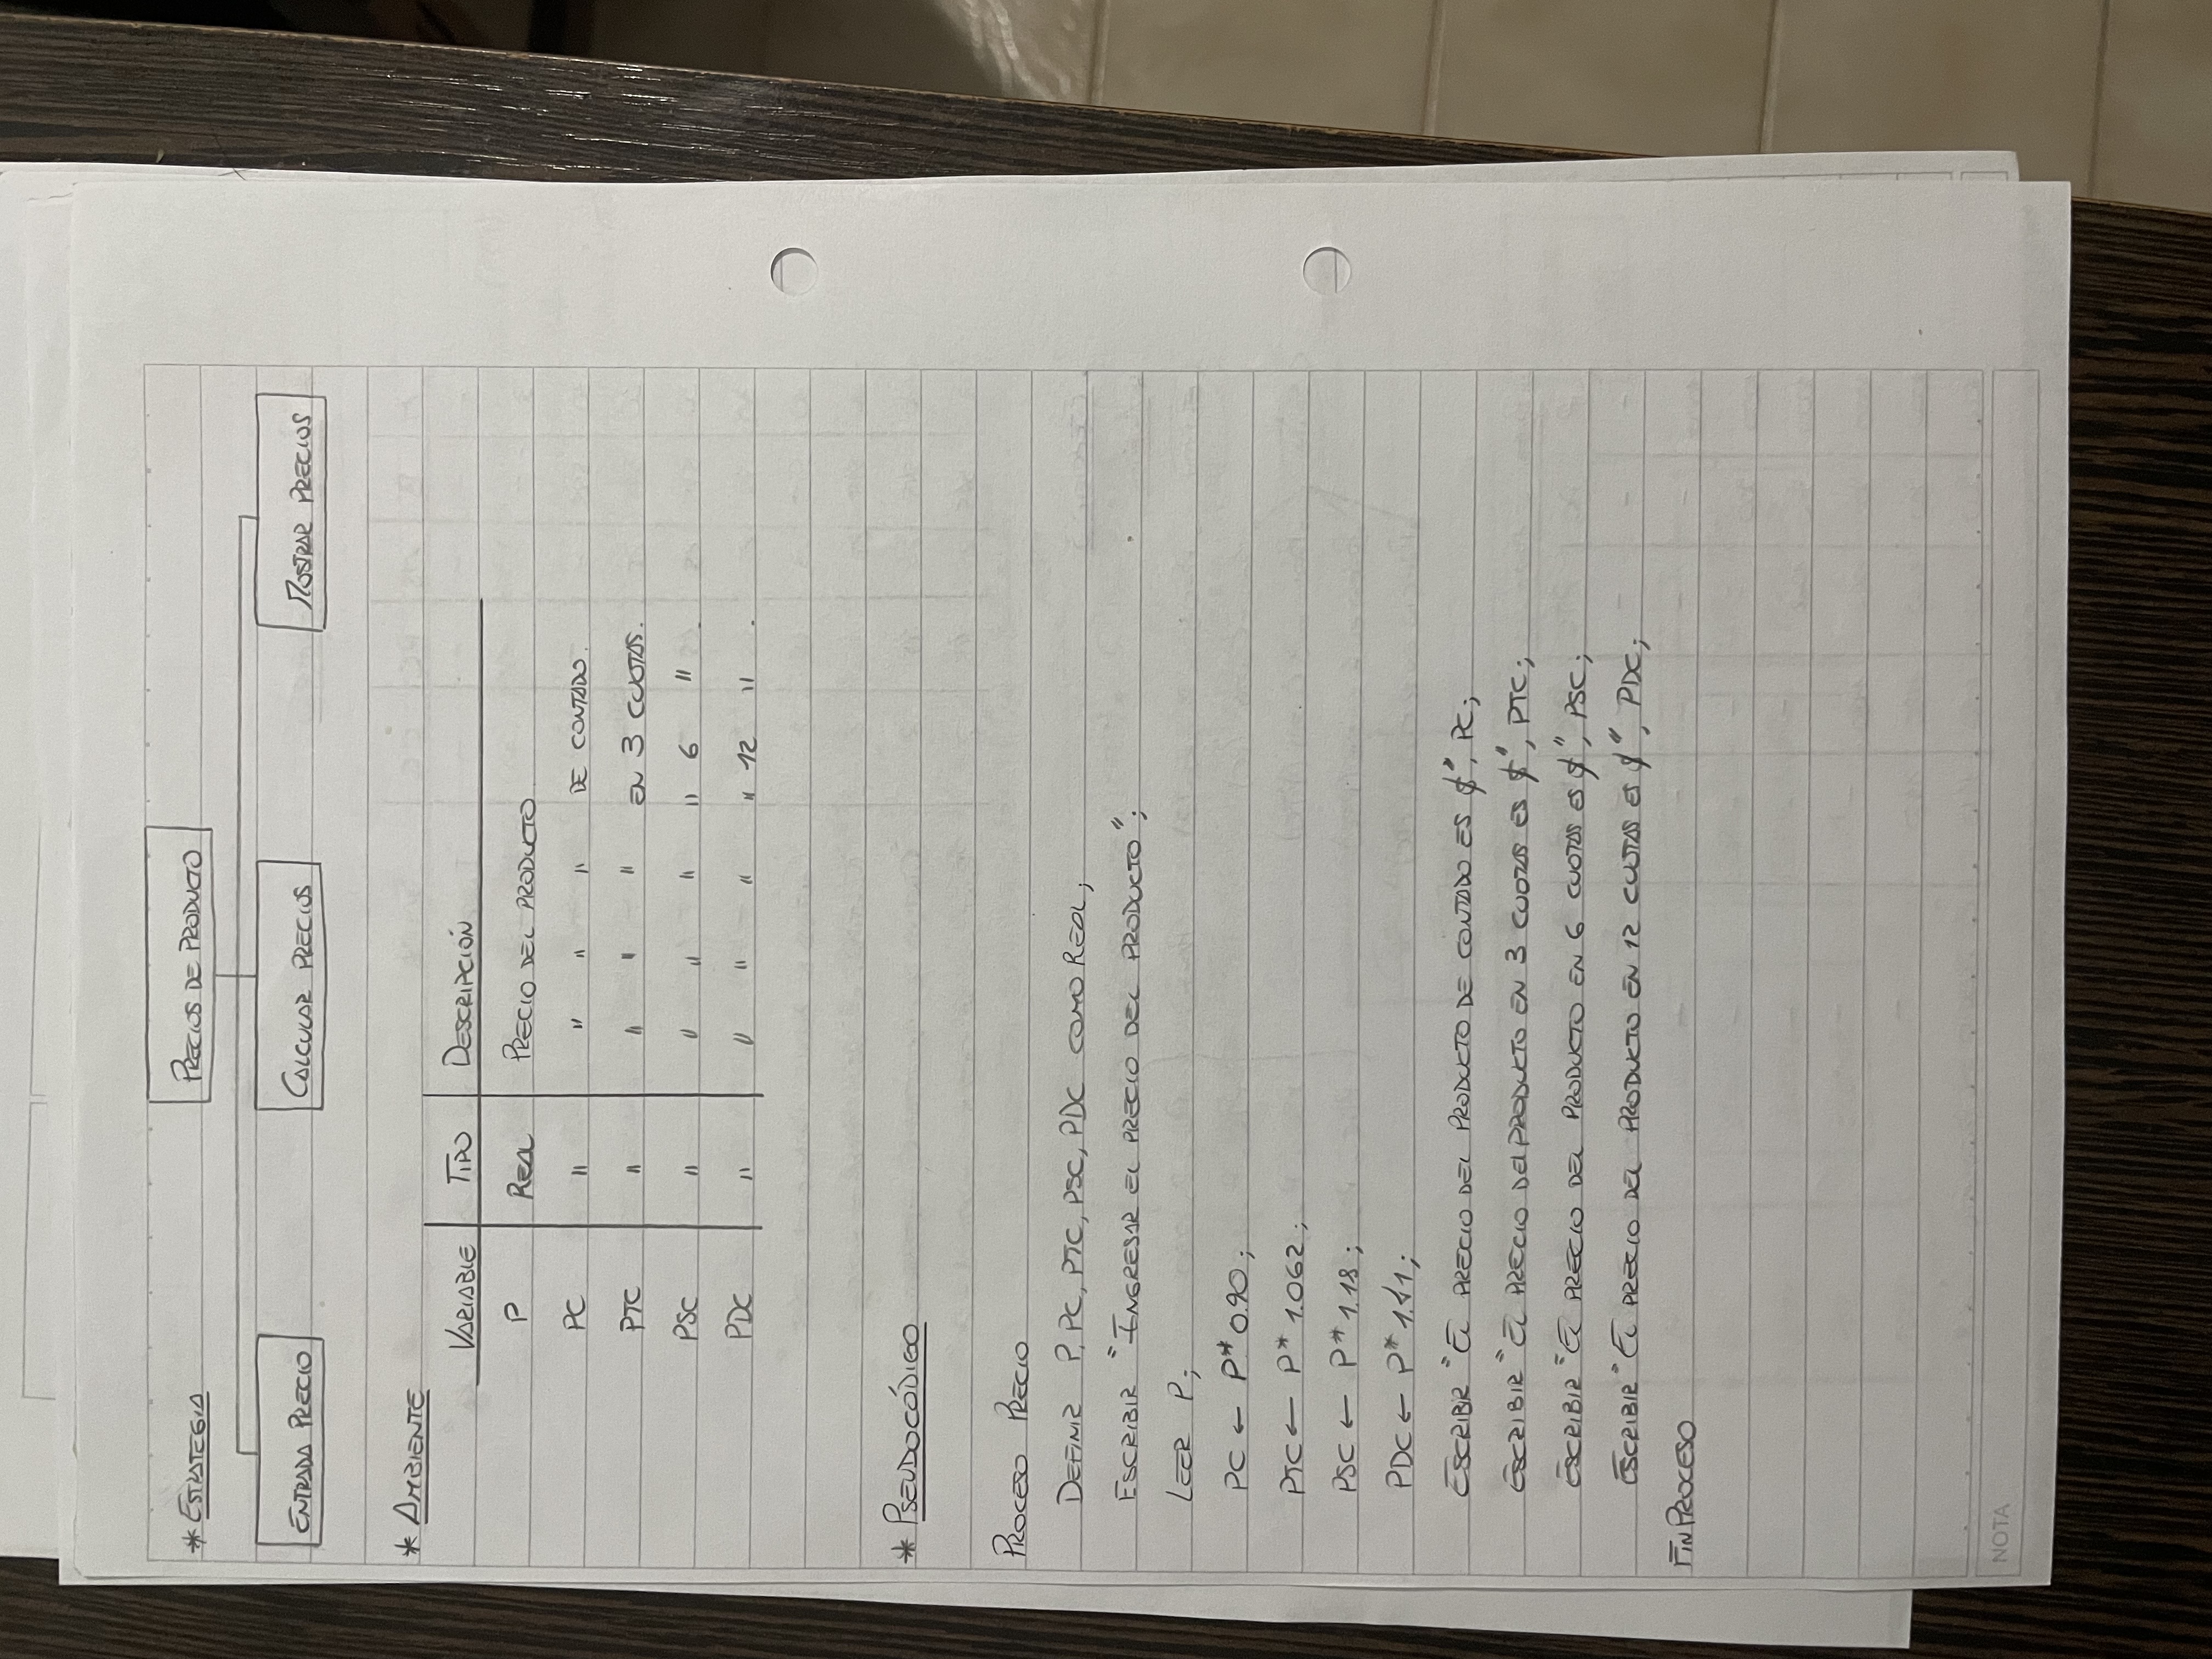 * ESTRATEGIA
PRECIOS DE PRODUCTO
ENTRADA PRECIO CALCULAR PRECIOS MOSTRAR PRECIOS
* AMBIENTE
VARIABLE TIPO DESCRIPCIÓN
P REAL PRECIO DEL PRODUCTO
PC " " " " DE CONTADO.
PTC " " " " EN 3 CUOTAS.
PSC " " " " " 6 " .
PDC " " " " " 12 " .
* PSEUDOCÓDIGO
PROCESO PRECIO
DEFINIR P, PC, PTC, PSC, PDC COMO REAL;
ESCRIBIR "INGRESAR EL PRECIO DEL PRODUCTO";
LEER P;
PC ← P* 0.90;
PTC ← P* 1.062;
PSC ← P* 1.18;
PDC ← P* 1.41;
ESCRIBIR "EL PRECIO DEL PRODUCTO DE CONTADO ES $", PC;
ESCRIBIR "EL PRECIO DEL PRODUCTO EN 3 CUOTAS ES $", PTC;
ESCRIBIR "EL PRECIO DEL PRODUCTO EN 6 CUOTAS ES $", PSC;
ESCRIBIR "EL PRECIO DEL PRODUCTO EN 12 CUOTAS ES $", PDC;
FINPROCESO
NOTA